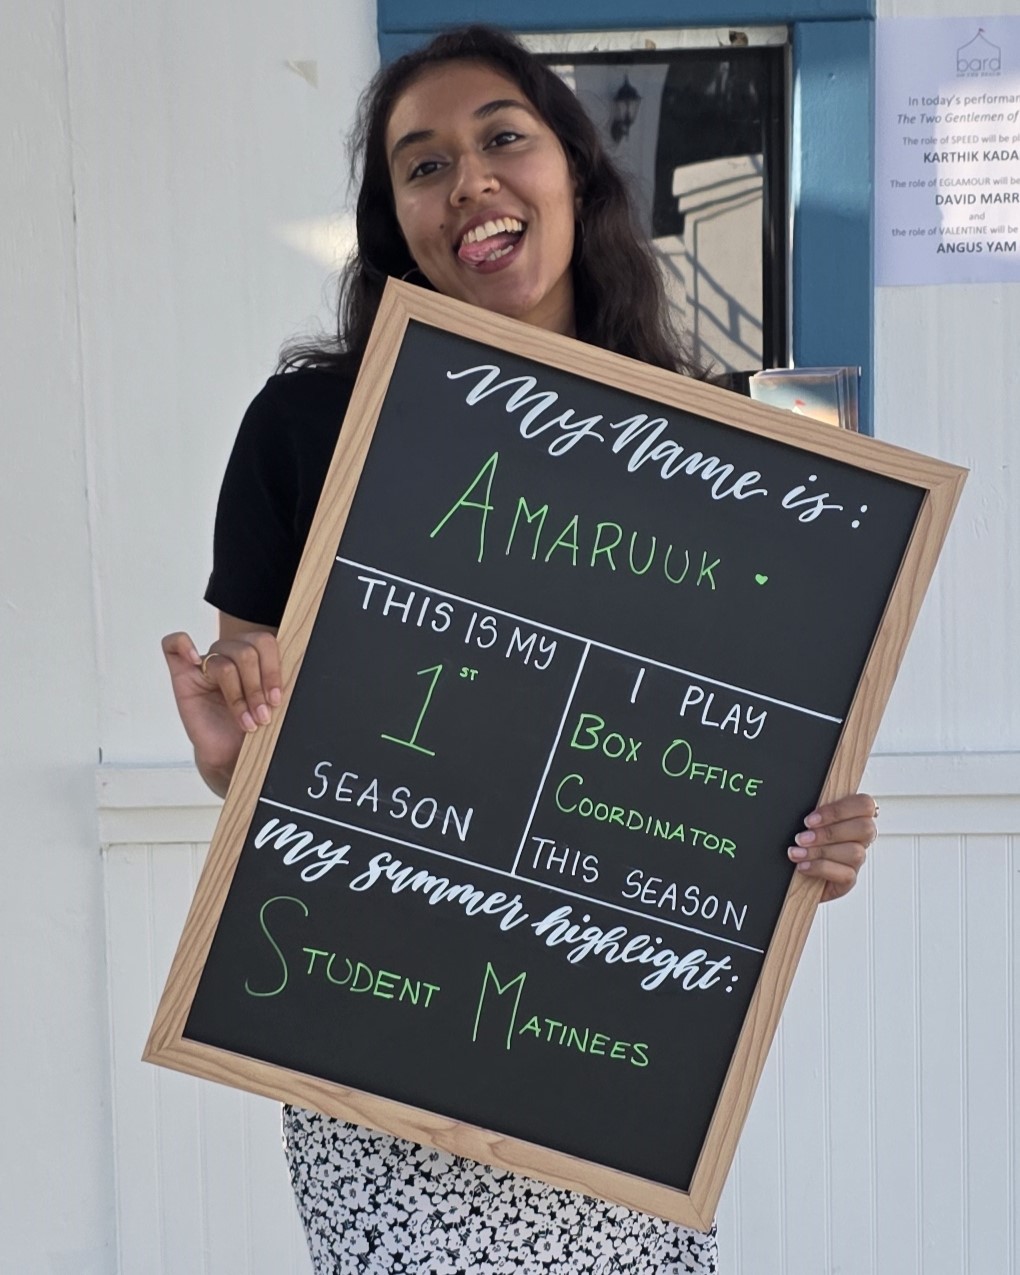 My Name is:
AMARUUK
THIS IS MY
1ST
SEASON
I PLAY
BOX OFFICE
COORDINATOR
THIS SEASON
My summer highlight:
STUDENT MATINEES
bard
ON THE BEACH
In today's
The Two Gentlemen of
The role of SPEED will be
KARTHIK
The role of EGLAMOUR will be
DAVID
and
the role of VALENTINE will be
ANGUS YAM